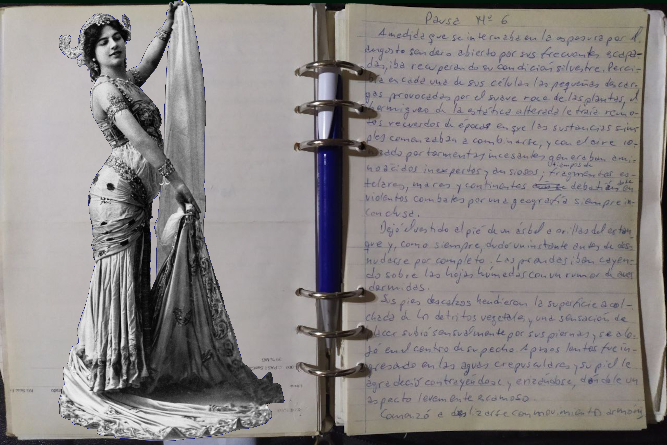 Pausa Nº 6
A medida que se internaba en la espesura por el
angosto sendero abierto por sus frecuentes escapa-
das, iba recuperando su condición silvestre. Perci-
bía en cada una de sus células las pequeñas descar-
gas provocadas por el suave roce de las plantas, el
hormigueo de la estática alterada le traía remo-
tos recuerdos de épocas en que las sustancias sim-
ples comenzaban a combinarse, y con el aire
por tormentas incesantes generaban ami-
noácidos inexpertos y ansiosos; fragmentos es-
telares, mares y continentes debatían en
violentos combates por una geografía siempre in-
conclusa.
Dejó el vestido al pie de un árbol a orillas del estan-
que y, como siempre, dudó un instante antes de des-
nudarse por completo. Las prendas iban cayen-
do sobre las hojas húmedas con un rumor de aves
dormidas.
Sus pies descalzos hendieron la superficie acol-
chada de detritos vegetales, y una sensación de
placer subió sensualmente por sus piernas y se alo-
jó en el centro de su pecho. A pasos lentos fue in-
gresando en las aguas crepusculares y su piel le
agradeció contrayéndose y erizándose, dándole un
aspecto levemente escamoso.
Comenzó a deslizarse con movimientos